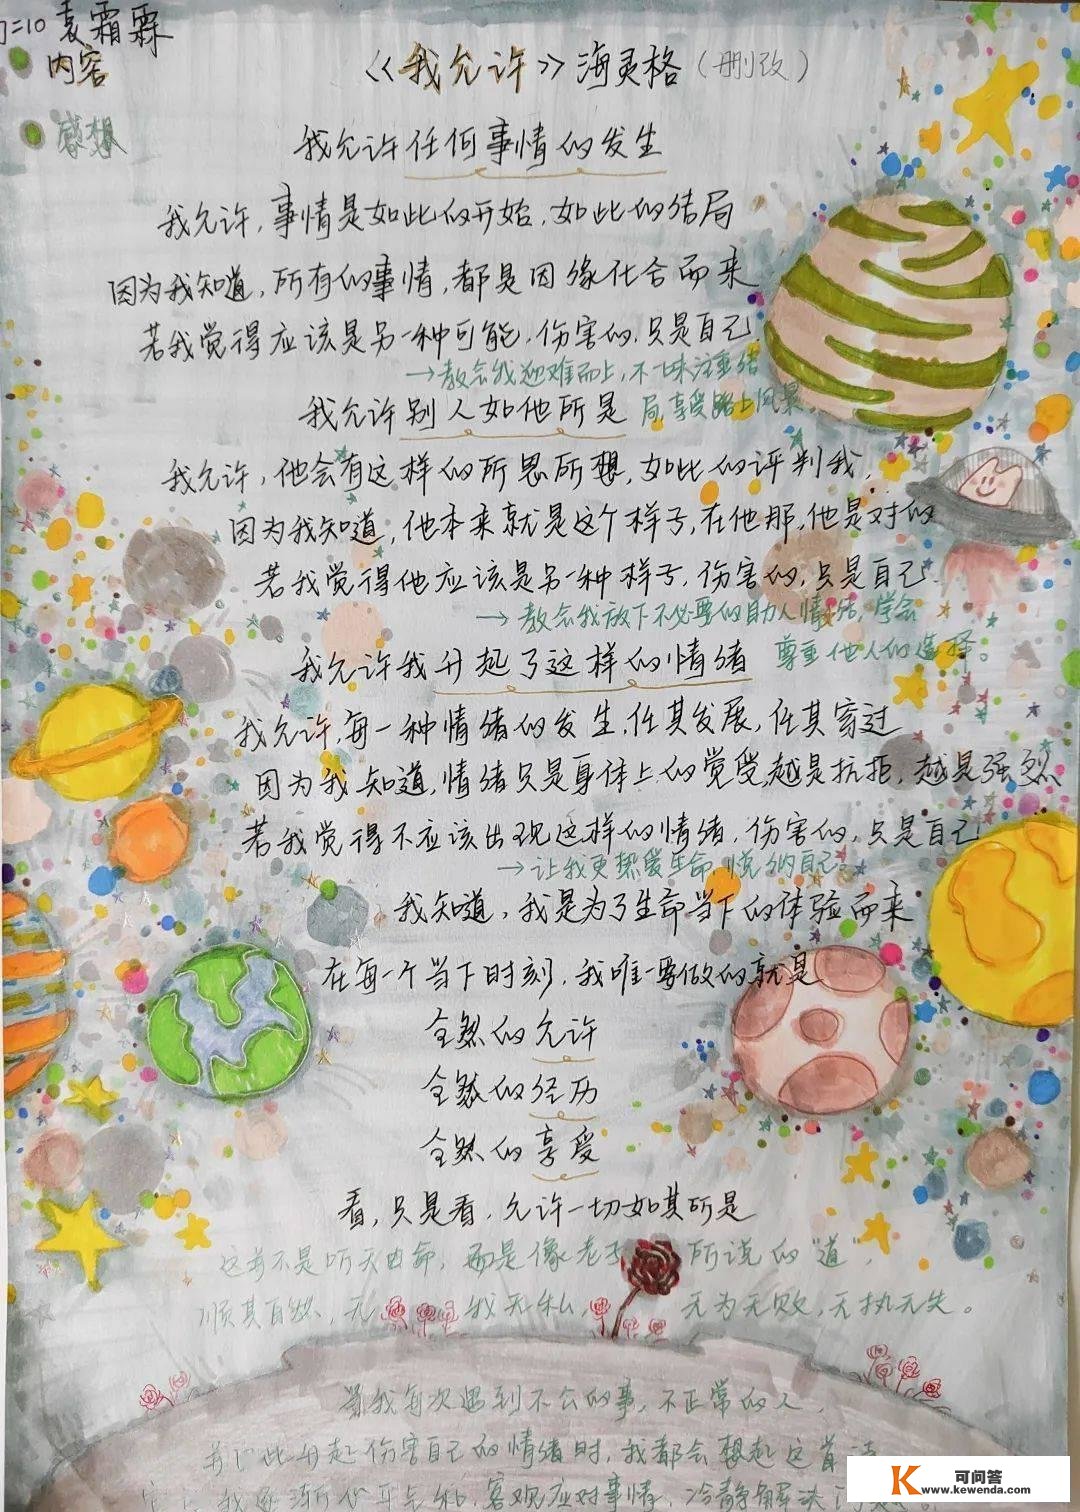 袁霜霖
内容
《我允许》海灵格（删改）
感想
我允许任何事情的发生
我允许，事情是如此的开始，如此的结局
因为我知道，所有的事情，都是因缘化合而来
若我觉得应该是另一种可能，伤害的，只是自己
→教会我迎难而上，不一味注重结
局，享受路上风景。
我允许别人如他所是
我允许，他会有这样的所思所想，如此的评判我，
因为我知道，他本来就是这个样子，在他那，他是对的
若我觉得他应该是另一种样子，伤害的，只是自己
→教会我放下不必要的助人情结，学会
尊重他人的选择。
我允许我升起了这样的情绪
我允许，每一种情绪的发生，任其发展，任其穿过
因为我知道，情绪只是身体上的觉受，越是抗拒，越是强烈
若我觉得不应该出现这样的情绪，伤害的，只是自己
→让我更热爱生命，悦纳自己。
我知道，我是为了生命当下的体验而来
在每一个当下时刻，我唯一要做的就是
全然的允许
全然的经历
全然的享受
看，只是看，允许一切如其所是
这并不是听天由命，而是像老子所说的“道”，
顺其自然，无我无私，无为无败，无执无失。
当我每次遇到不公的事，不正常的人，
并因此升起伤害自己的情绪时，我都会想起这首诗
我逐渐心平气和，客观应对事情，冷静解决
可问答
www.kewenda.com